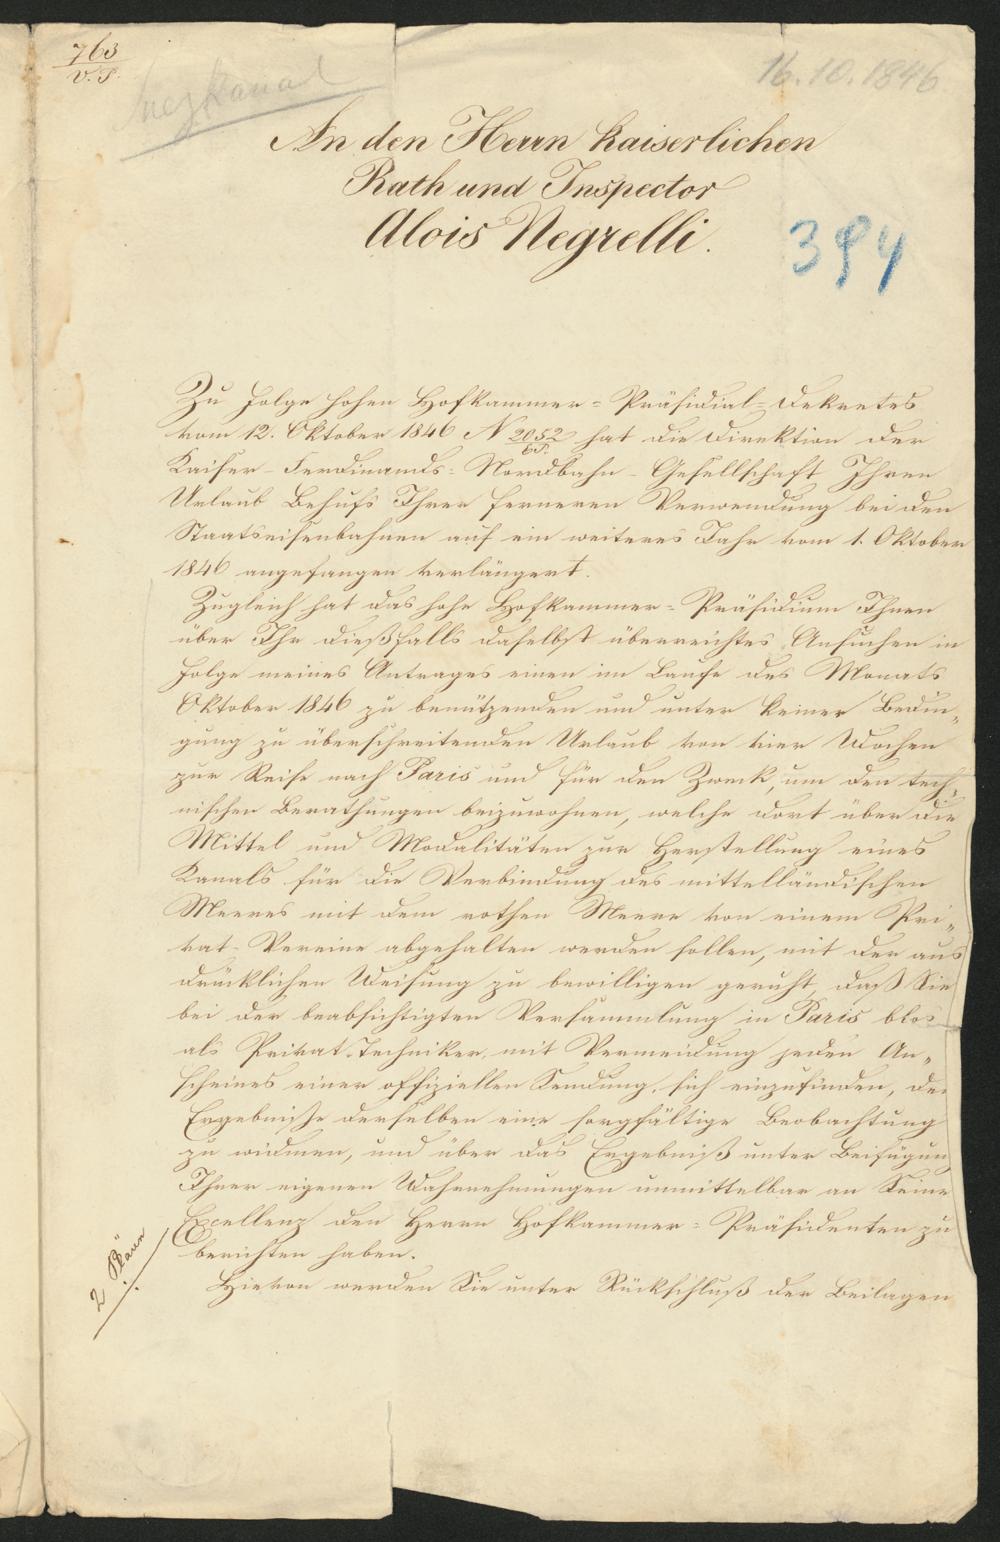 763
V. P.
Suezkanal
16.10.1846
An den Herrn kaiserlichen
Rath und Inspector
Alois Negrelli.
394
Zu Folge hohen Hofkammer-Präsidial-Dekretes
vom 12. Oktober 1846 N 2052 hat die Direktion der
Kaiser-Ferdinands-Nordbahn-Gesellschaft Ihren
Urlaub Behufs Ihrer ferneren Verwendung bei den
Staatseisenbahnen auf ein weiteres Jahr vom 1. Oktober
1846 angefangen verlängert.
Zugleich hat das hohe Hofkammer-Präsidium Ihnen
über Ihr dießfalls daselbst überreichtes Ansuchen in
Folge meines Antrages einen im Laufe des Monats
Oktober 1846 zu benützenden und unter keiner Bedin-
gung zu überschreitenden Urlaub von vier Wochen
zur Reise nach Paris und für den Zweck, um den tech-
nischen Berathungen beizuwohnen, welche dort über die
Mittel und Modalitäten zur Herstellung eines
Kanals für die Verbindung des mittelländischen
Meeres mit dem rothen Meere von einem Pri-
vat-Vereine abgehalten werden sollen, mit der aus
drücklichen Weisung zu bewilligen geruht, daß Sie
bei der beabsichtigten Versammlung in Paris blos
als Privat-Techniker, mit Vermeidung jeden An-
scheines einer offiziellen Sendung, sich einzufinden, de
Ergebniße derselben eine sorgfältige Beobachtung
zu widmen, und über das Ergebniß unter Beifügun
Ihrer eigenen Wahrnehmungen unmittelbar an Seine
Excellenz den Herrn Hofkammer-Präsidenten zu
berichten haben.
2 Pläne
Hievon werden Sie unter Rückschluß der Beilagen